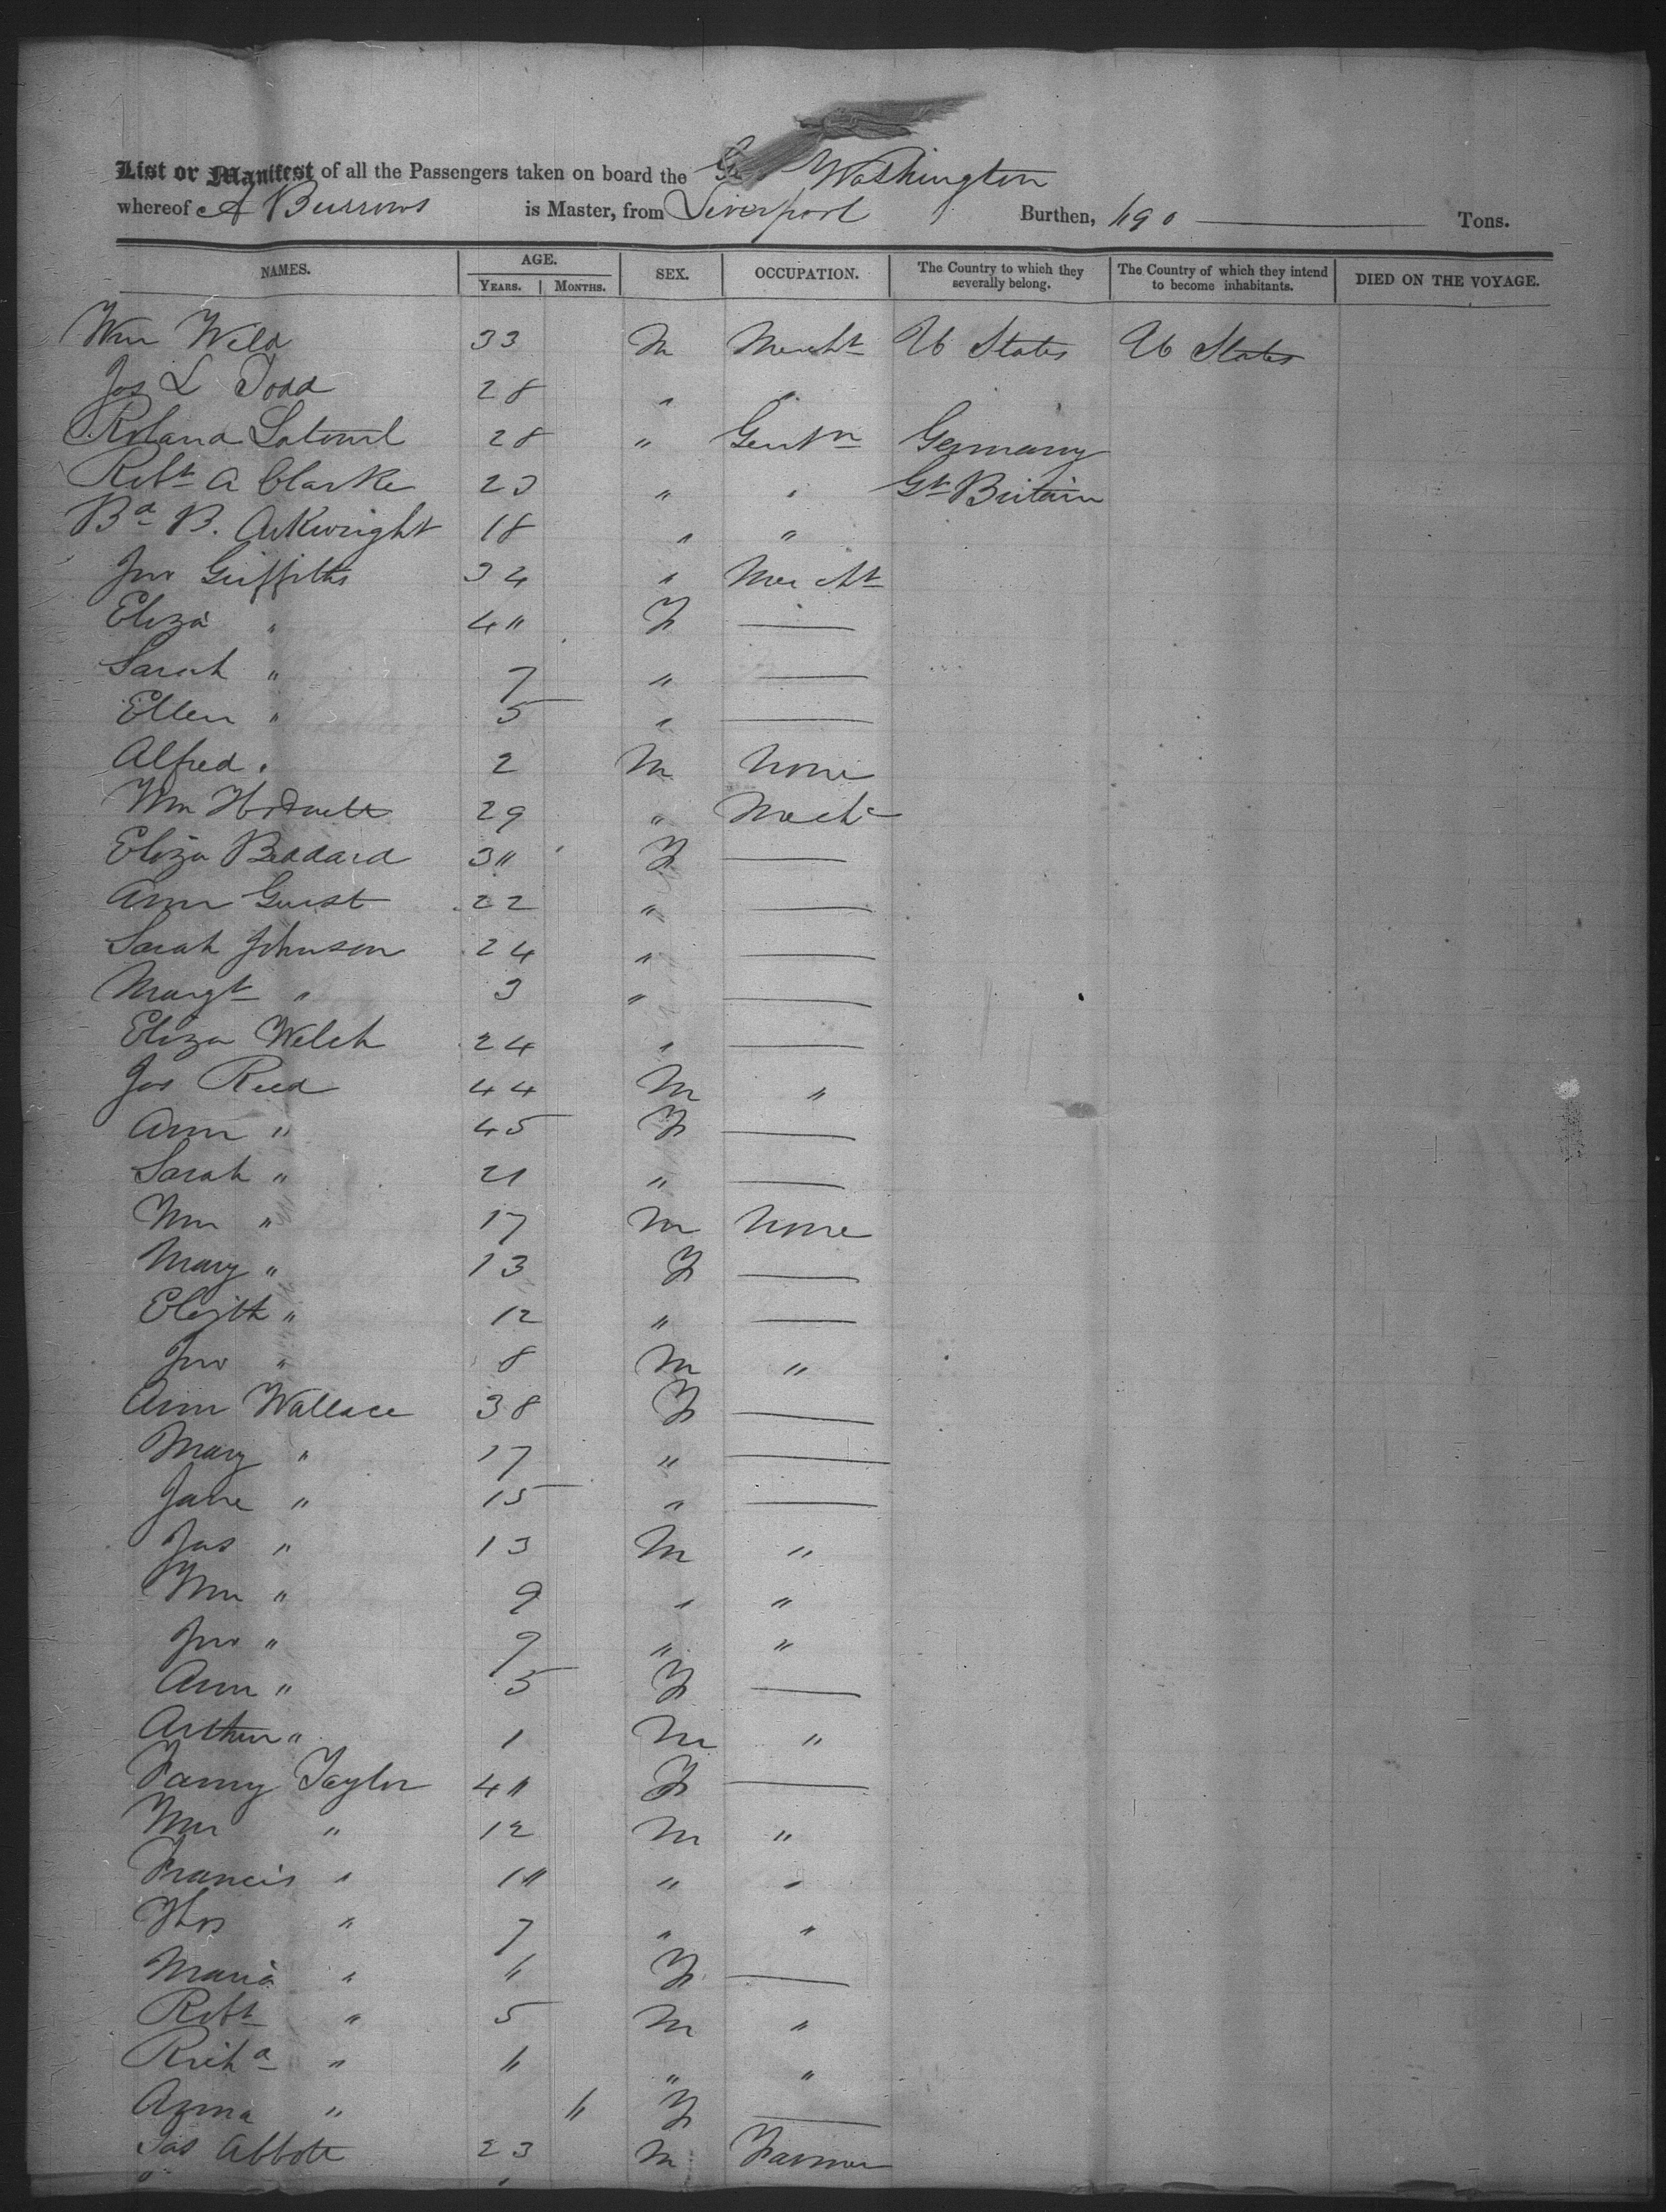 List or Manifest of all the Passengers taken on board the Geo Washington
whereof A Burrows is Master, from Liverpool Burthen, 690 Tons.
NAMES. AGE. YEARS. MONTHS. SEX. OCCUPATION. The Country to which they severally belong. The Country of which they intend to become inhabitants. DIED ON THE VOYAGE.
Wm Wild 33 M Mercht U States U States
Jos L Todd 28 " "
Roland 28 " Gentn Germany
Robt A Clarke 23 " " Gt Britain
Bd B. Arkwright 18 " "
Jno Griffiths 34 " Mercht
Eliza " 40 F —
Sarah " 7 " —
Ellen " 5 " —
Alfred " 2 M None
Wm Hodnett 29 " Mechc
Eliza Beddard 30 F —
Ann Guest 22 " —
Sarah Johnson 24 " —
Margt " 3 " —
Eliza Welch 24 " —
Jas Reed 44 M "
Ann " 45 F —
Sarah " 21 " —
Wm " 17 M None
Mary " 13 F —
Elizth " 12 " —
Jno " 8 M "
Ann Wallace 38 F —
Mary " 17 " —
Jane " 15 " —
Jas " 13 M "
Wm " 9 " "
Jno " 7 " "
Ann " 5 F —
Arthur " 1 M "
Fanny Taylor 40 F —
Wm " 12 M "
Francis " 10 " "
Thos " 7 " "
Maria " 6 F —
Robt " 5 M "
Richd " "  "
Anna " F —
Jas Abbott 23 M Farmer